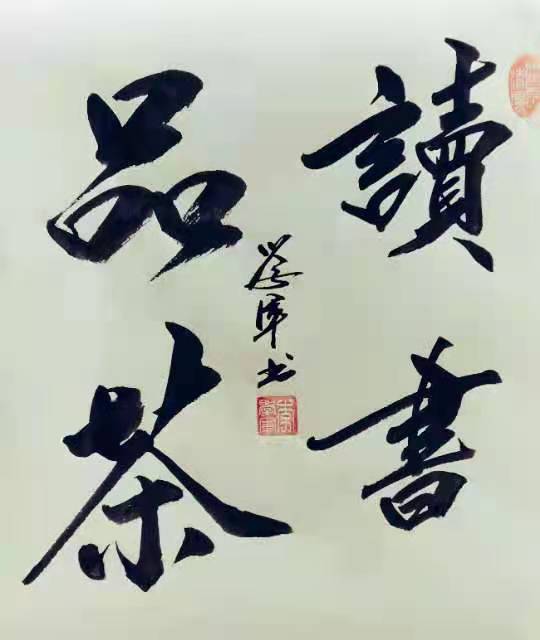 讀書
品茶